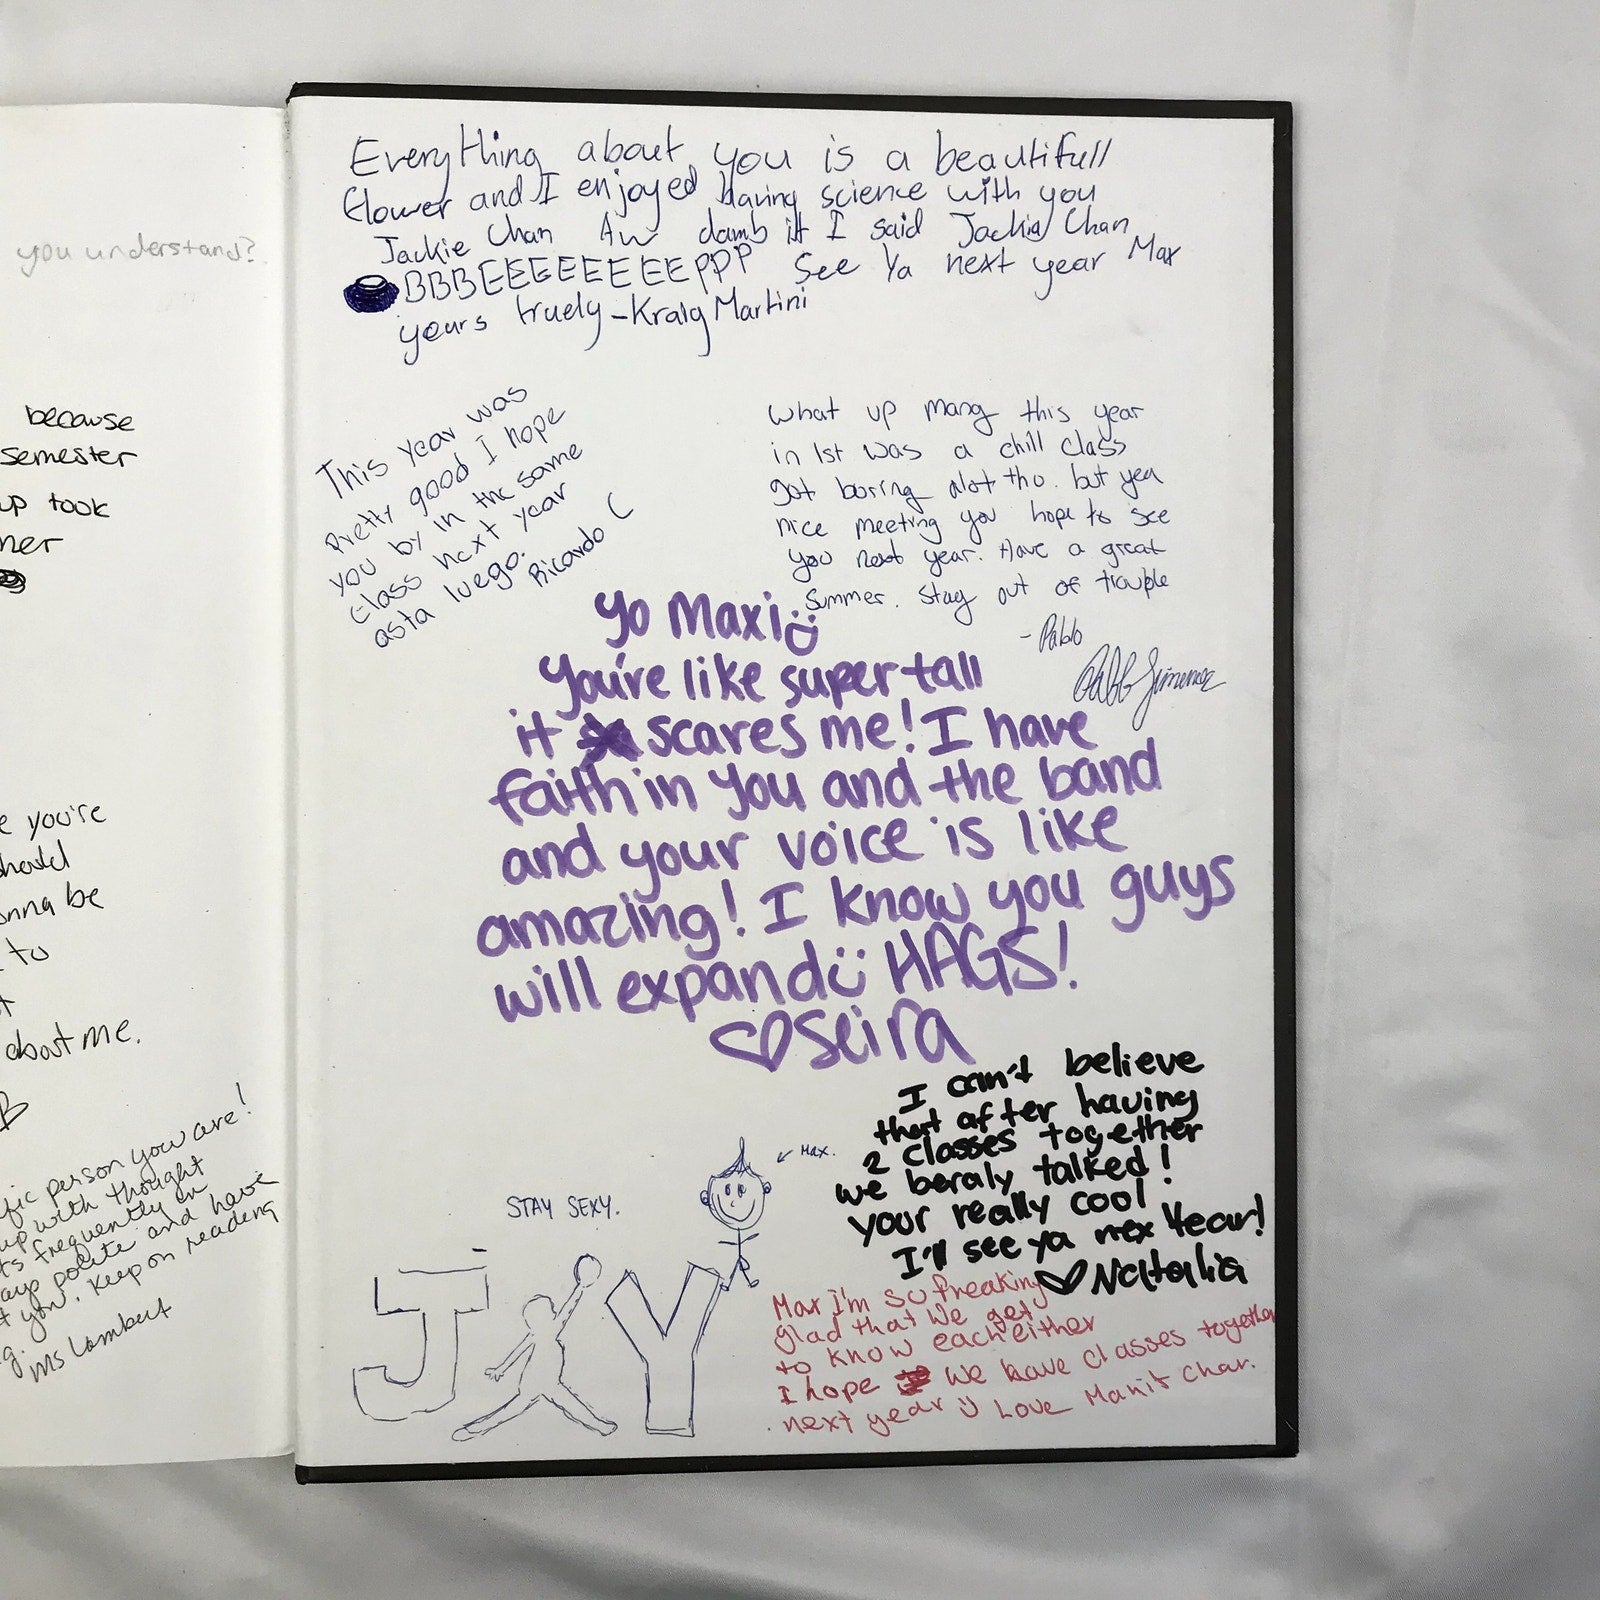 you understand?
because
semester
up took
ner
e you're
should
onna be
to
about me.
fic person you are!
up with thought
ts frequently in
ays polite and have
t you. Keep on reading
g.
Ms Lambert
Everything about you is a beautifull
flower and I enjoyed having science with you
Jackie Chan Aw damb it I said Jackie Chan
BBBEEEEEEEEPPP See Ya next year Max
yours truely - Kraig Martini
This year was
pretty good I hope
you by in the same
class next year
asta luego.
Ricardo C
What up mang this year
in 1st was a chill class
got boring alot tho. but yea
nice meeting you hope to see
you next year. Have a great
summer. Stay out of trouble
- Pablo
Pablo Jimenez
Yo Maxi
You're like super tall
it scares me! I have
faith in you and the band
and your voice is like
amazing! I know you guys
will expand HAGS!
Seira
I can't believe
that after having
2 classes together
we beraly talked!
your really cool
I'll see ya nex Year!
Natalia
Max.
STAY SEXY.
JAY
Max I'm so freaking
glad that we get
to know each either
I hope we have classes together
next year Love Manit Char.